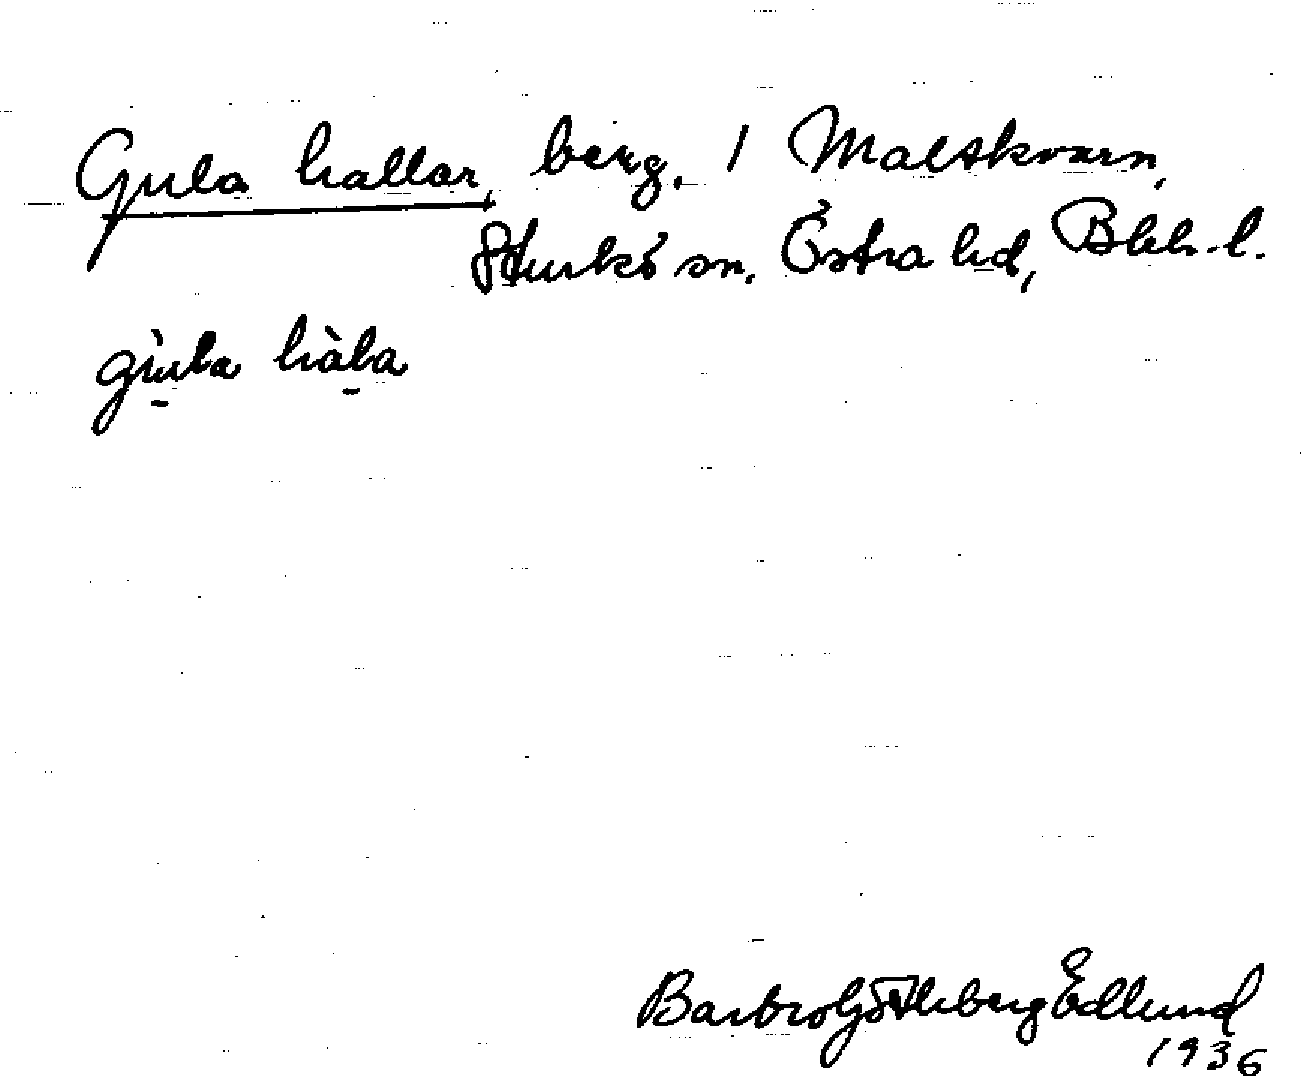 Gula hallar, berg. / Maltkvarn,
Sturkö sn. Östra hd, Blek. l.
gùla hàla
Barbro Götheberg Edlund
1936